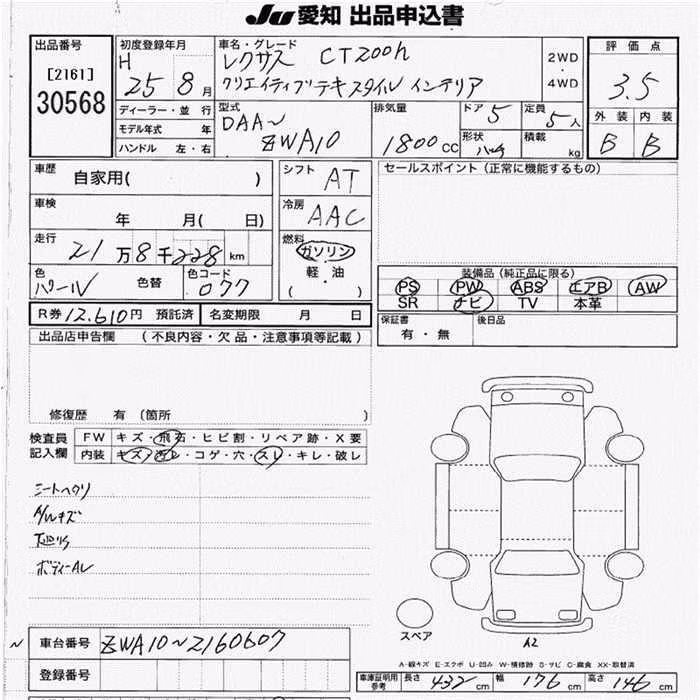 JU 愛知 出品申込書
出品番号
[2161]
30568
初度登録年月
H
25 8 月
車名・グレード
レクサス CT200h
クリエイティブテキスタイル インテリア
2WD
4WD
評価点
3.5
外装 内装
B B
ディーラー・並行
モデル年式 年
ハンドル 左・右
型式
DAA~
ZWA10
排気量
1800 CC
ドア 5
定員 5 人
形状
ハッチ
積載
kg
車歴
自家用( )
シフト AT
セールスポイント(正常に機能するもの)
車検
年 月( 日)
冷房 AAC
走行
21万8千228 km
燃料
ガソリン
軽・油
( )
色
パール
色替
色コード
077
装備品(純正品に限る)
PS PW ABS エアB AW
SR ナビ TV 本革
R券 12,610円 預託済
名変期限 月 日
保証書
有・無
後日品
出品店申告欄 (不良内容・欠品・注意事項等記載)
修復歴 有 (箇所 )
検査員
記入欄
FW キズ・飛石・ヒビ割・リペア跡・X要
内装 キズ・汚レ・コゲ・穴・スレ・キレ・破レ
シートヘタリ
A/Wキズ
下廻りS
ボディーAU
スペア
A2
~
車台番号 ZWA10~2160607
登録番号
A-線キズ E-エクボ U-凹み W-補修跡 S-サビ C-腐食 XX-取替済
車庫証明用
参考
長さ 432 cm
幅 176 cm
高さ 146 cm